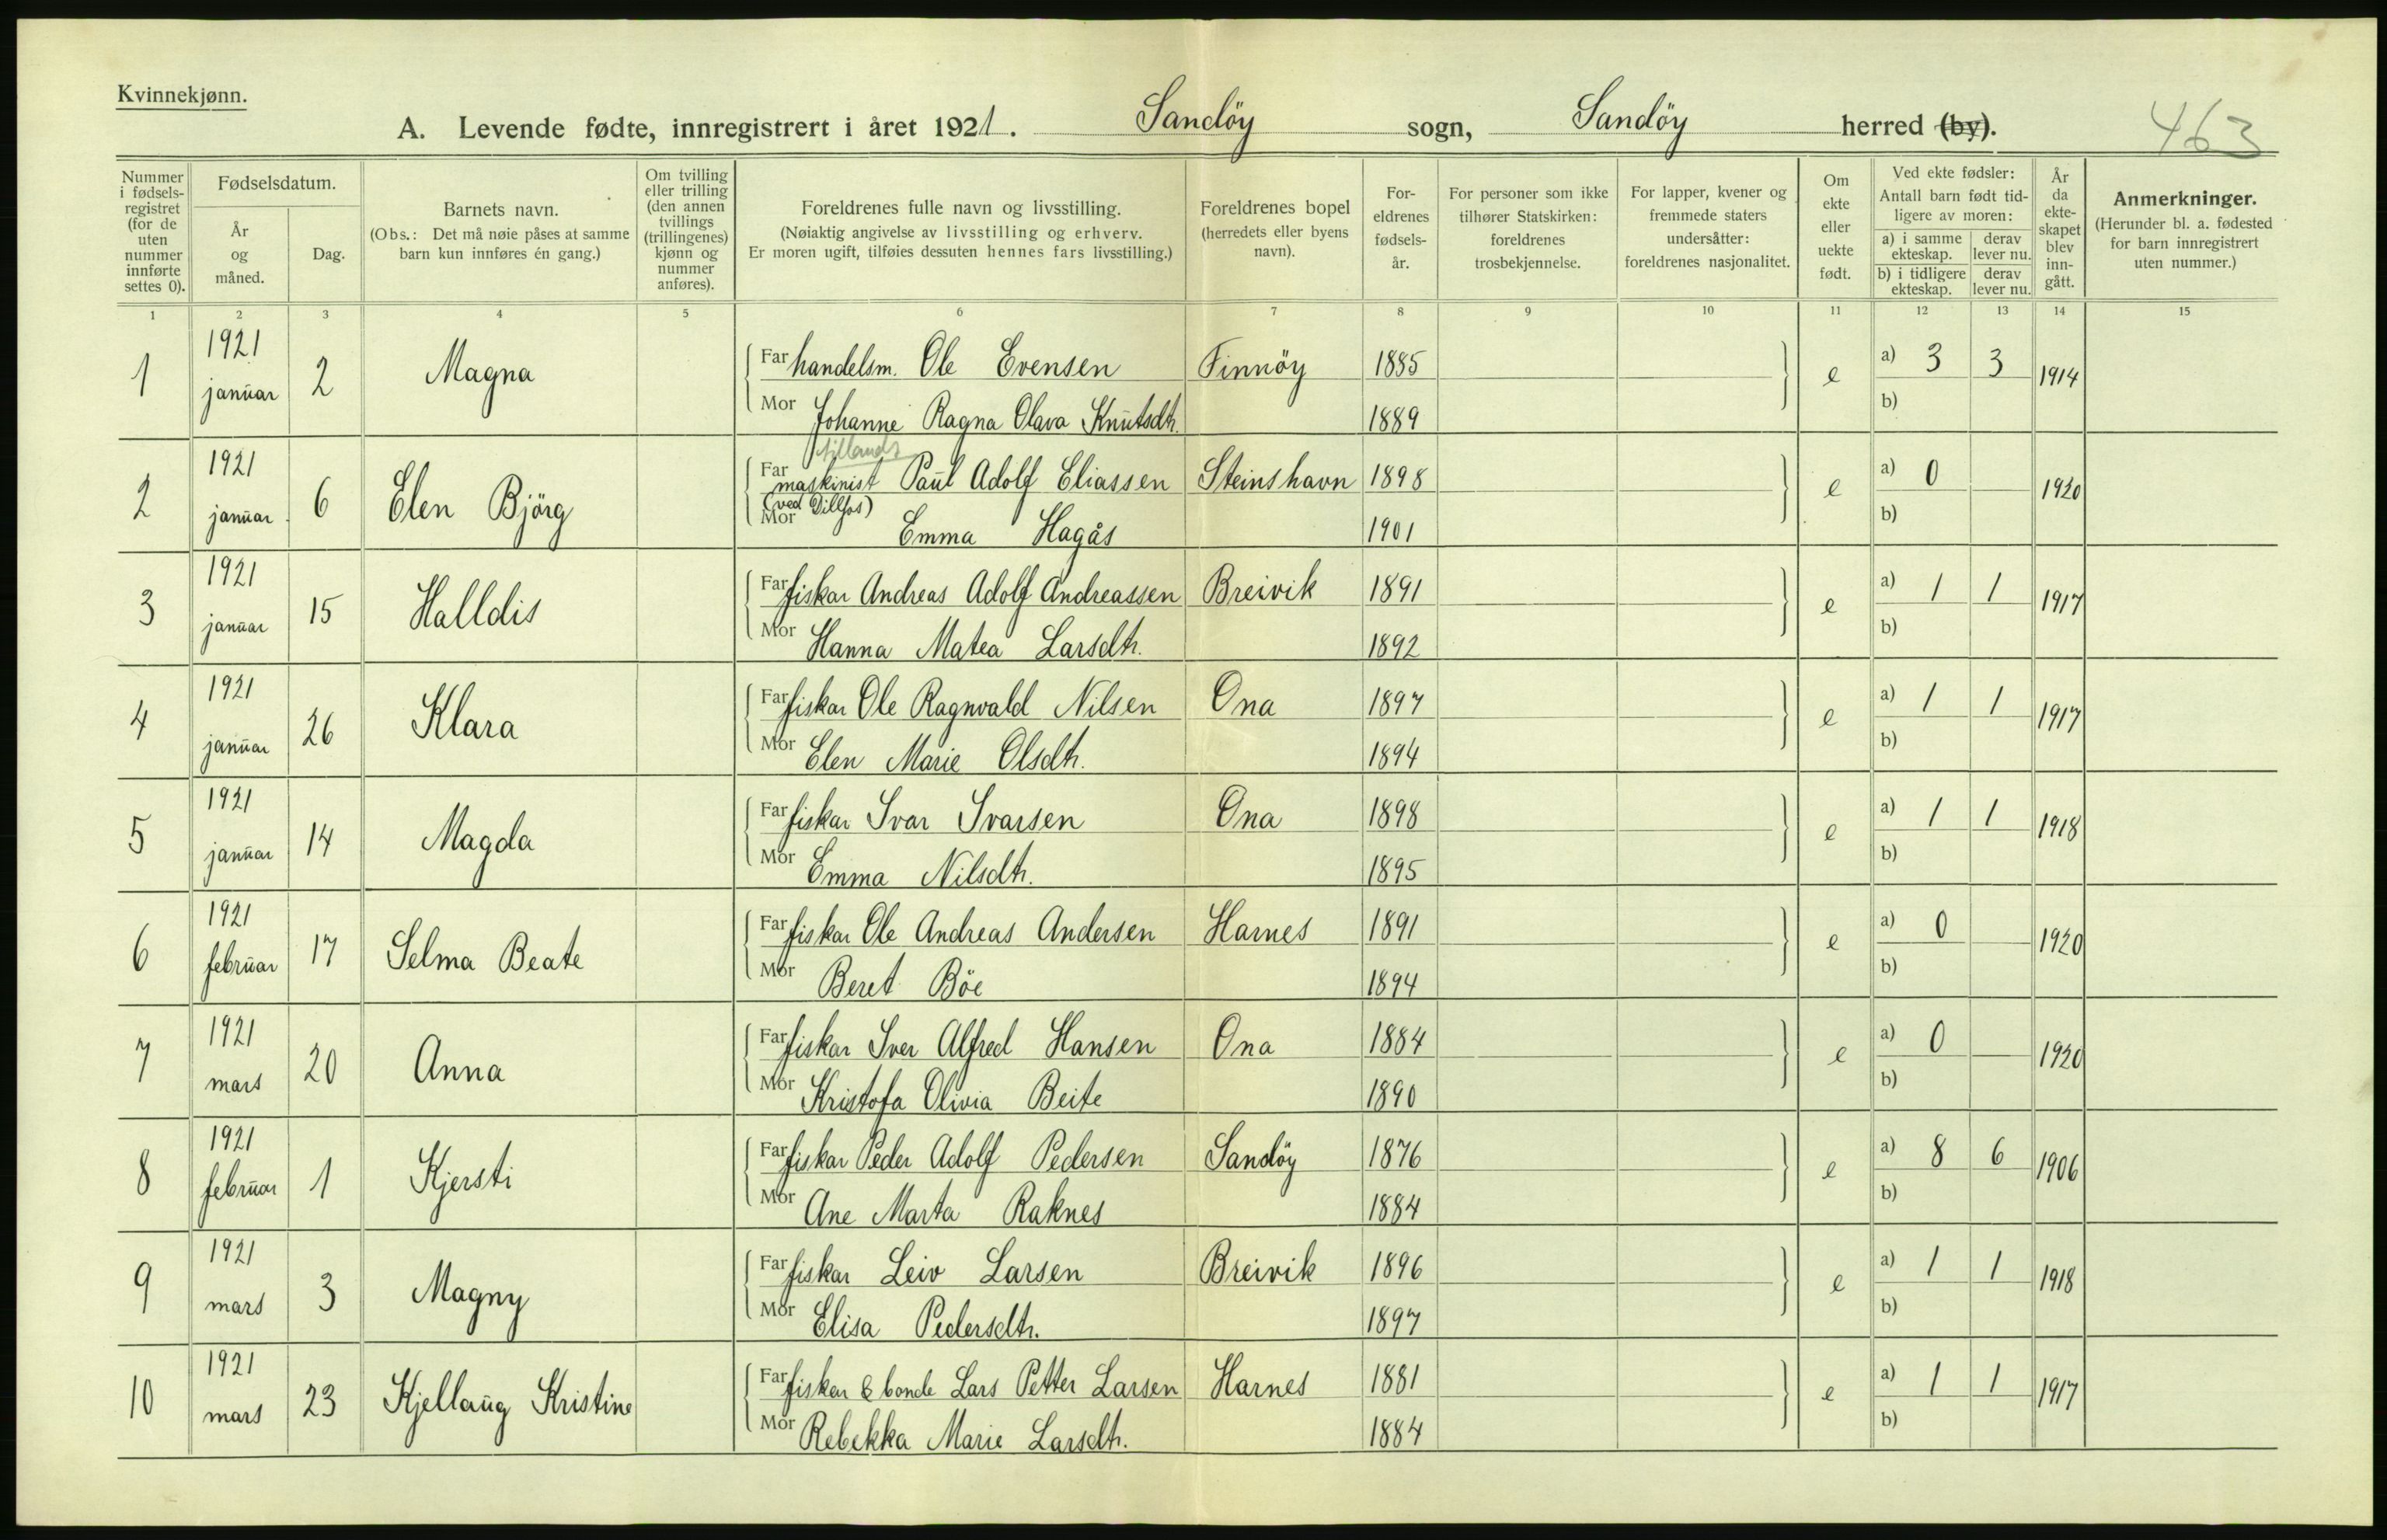 Kvinnekjønn.
A. Levende fødte, innregistrert i året 1921. Sandöy sogn, Sandöy herred (by). 463
Nummer i fødselsregistret (for de uten nummer innførte settes 0).
Fødselsdatum.
År og måned.
Dag.
Barnets navn.
(Obs.: Det må nøie påses at samme barn kun innføres én gang.)
Om tvilling eller trilling (den annen tvillings (trillingenes) kjønn og nummer anføres).
Foreldrenes fulle navn og livsstilling.
(Nøiaktig angivelse av livsstilling og erhverv.
Er moren ugift, tilføies dessuten hennes fars livsstilling.)
Foreldrenes bopel (herredets eller byens navn).
For-eldrenes fødsels-år.
For personer som ikke tilhører Statskirken: foreldrenes trosbekjennelse.
For lapper, kvener og fremmede staters undersåtter: foreldrenes nasjonalitet.
Om ekte eller uekte født.
Ved ekte fødsler:
Antall barn født tid-ligere av moren:
a) i samme ekteskap. derav lever nu.
b) i tidligere ekteskap. derav lever nu.
År da ekte-skapet blev inn-gått.
Anmerkninger.
(Herunder bl. a. fødested for barn innregistrert uten nummer.)
1 2 3 4 5 6 7 8 9 10 11 12 13 14 15
1 1921 januar 2 Magna Far handelsm. Ole Evensen Finnöy 1885 e a) 3 3 1914
Mor Johanne Ragna Olava Knutsdtr. 1889 b)
2 1921 januar 6 Elen Björg Far maskinist Paul Adolf Eliassen Steinshavn 1898 e a) 0 1920
Mor Emma Hagås 1901 b)
3 1921 januar 15 Halldis Far fiskar Andreas Adolf Andreassen Breivik 1891 e a) 1 1 1917
Mor Hanna Matea Larsdtr. 1892 b)
4 1921 januar 26 Klara Far fiskar Ole Ragnvald Nilsen Ona 1897 e a) 1 1 1917
Mor Elen Marie Olsdtr. 1894 b)
5 1921 januar 14 Magda Far fiskar Ivar Ivarsen Ona 1898 e a) 1 1 1918
Mor Emma Nilsdtr. 1895 b)
6 1921 februar 17 Selma Beate Far fiskar Ole Andreas Andersen Harnes 1891 e a) 0 1920
Mor Beret Böe 1894 b)
7 1921 mars 20 Anna Far fiskar Iver Alfred Hansen Ona 1884 e a) 0 1920
Mor Kristofa Olivia Beite 1890 b)
8 1921 februar 1 Kjersti Far fiskar Peder Adolf Pedersen Sandöy 1876 e a) 8 6 1906
Mor Ane Marta Raknes 1884 b)
9 1921 mars 3 Magny Far fiskar Leiv Larsen Breivik 1896 e a) 1 1 1918
Mor Elisa Pedersdtr. 1897 b)
10 1921 mars 23 Kjellaug Kristine Far fiskar & bonde Lars Petter Larsen Harnes 1881 e a) 1 1 1917
Mor Rebekka Marie Larsdtr. 1884 b)